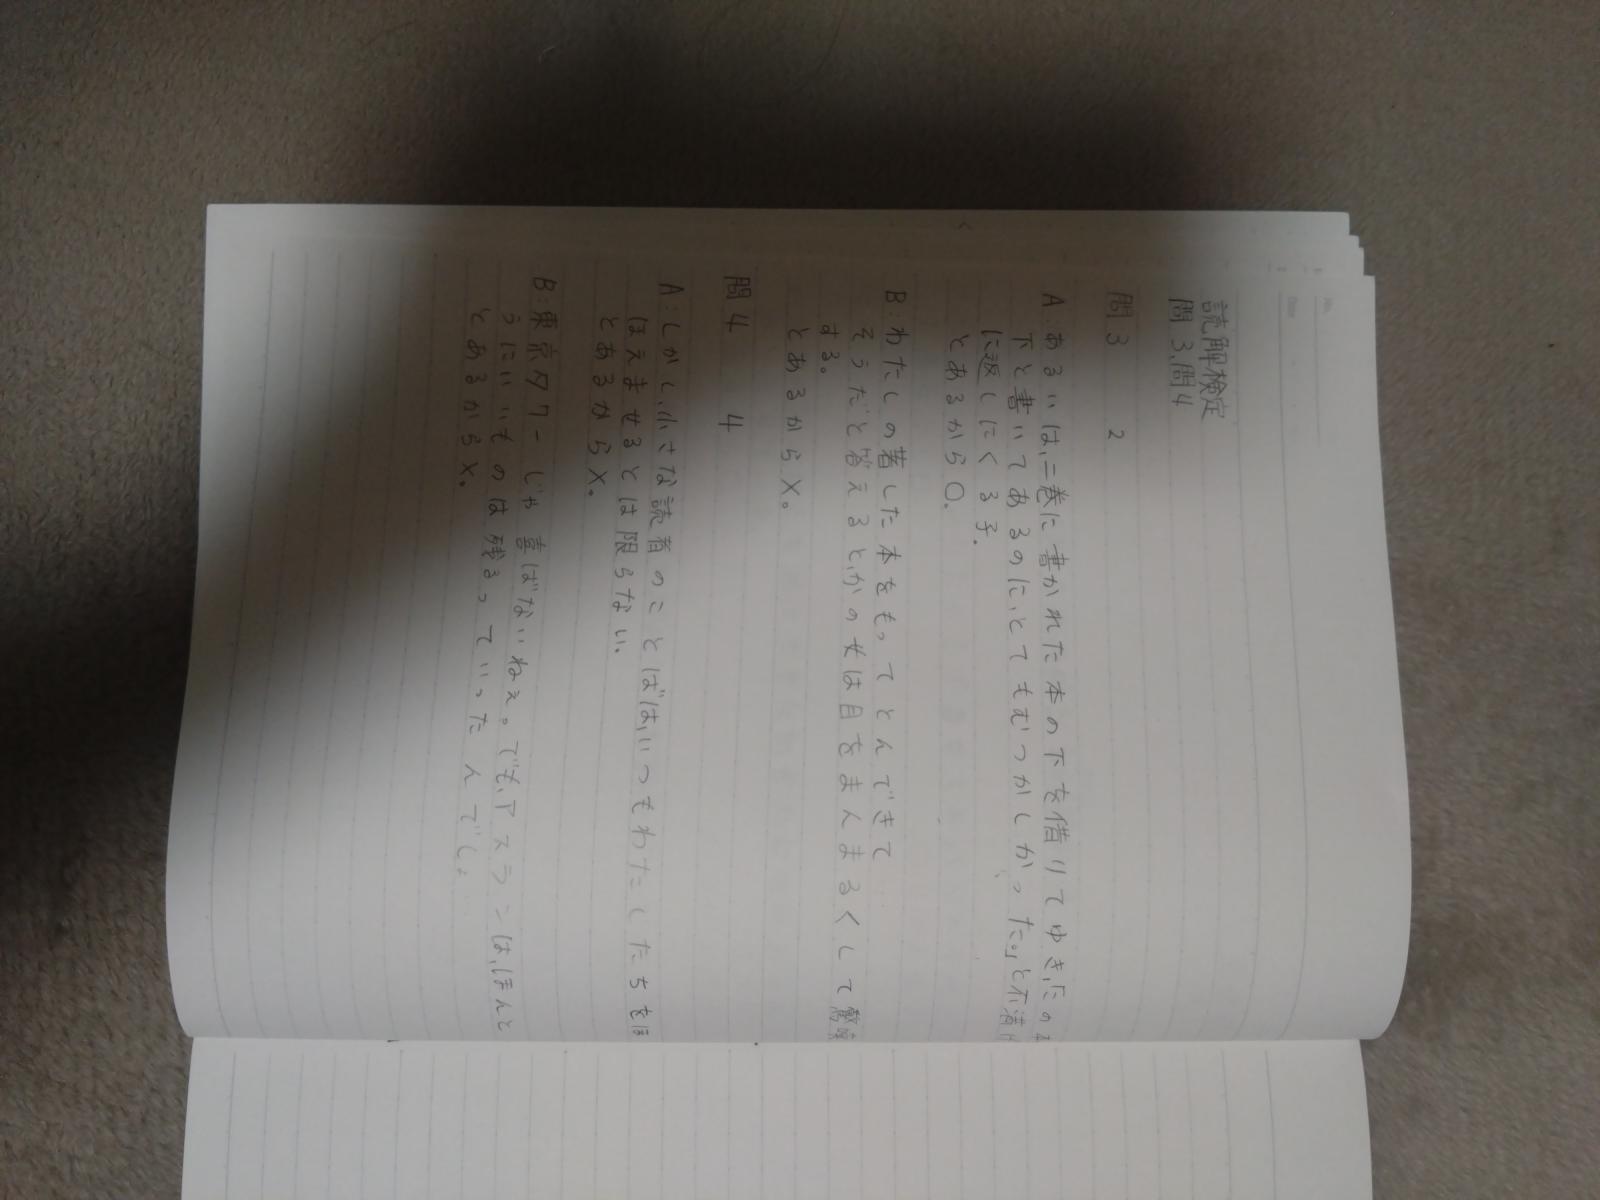 読解検定
問3,問4
問3 2
A あるいは、二巻に書かれた本の下を借りてゆき、にの
下と書いてあるのに、とてもむつかしかった。」と不満
に返しにくる子。
とあるから○.
B:わたしの著した本をもってとんできて
そうだと答えると、かの女は目をまんまるくして驚嘆
する。
とあるから×。
問4 4
A:しかし、小さな読者のことばは、いつもわたしたちをほ
ほえませるとは限らない.
とあるから×.
B:東京タワーじゃ喜ばないねえ。でも、アスランは、ほんと
うにいいものは残るっていったんでしょ
とあるから×.